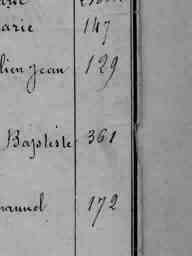 arie 147
lien Jean 129
Baptiste 361
manuel 172